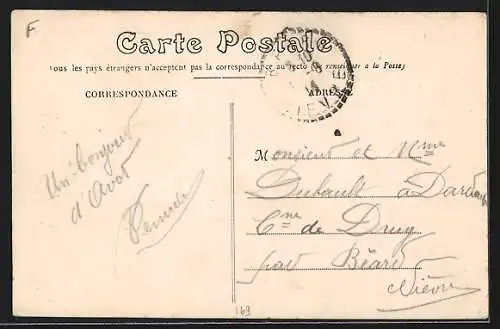 F
Carte Postale
Tous les pays étrangers n'acceptent pas la correspondance au recto (Se renseigner à la Poste)
CORRESPONDANCE
ADRESSE
Monsieur et Mme
Dubault à
Cne de Druy
par Béard
Nièvre
Un bonjour
d'Avot
163